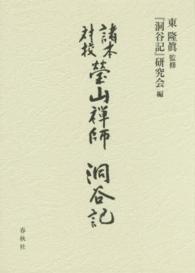 東 隆眞 監修
『洞谷記』研究会 編
諸本対校
瑩山禅師 洞谷記
春秋社